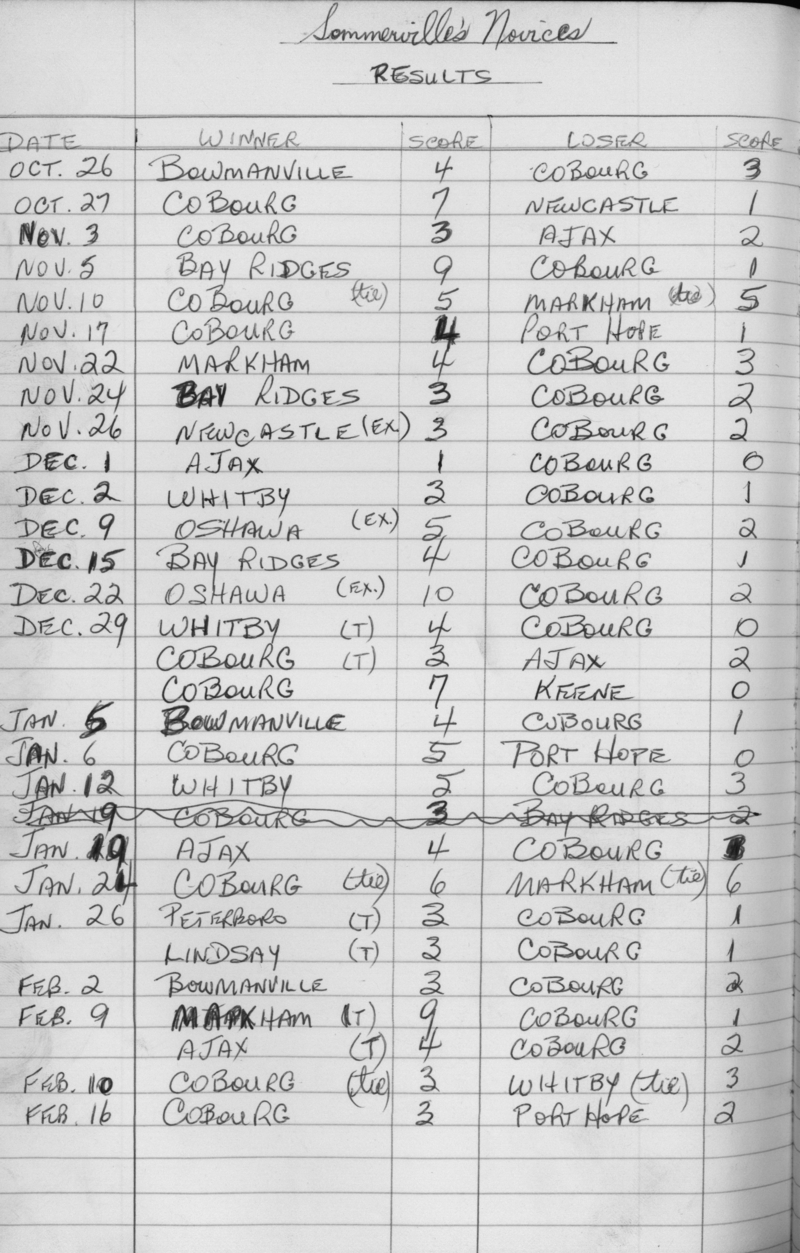 Sommerville's Novices
RESULTS
DATE WINNER SCORE LOSER SCORE
OCT. 26 BOWMANVILLE 4 COBOURG 3
OCT. 27 COBOURG 7 NEWCASTLE 1
NOV. 3 COBOURG 3 AJAX 2
NOV. 5 BAY RIDGES 9 COBOURG 1
NOV. 10 COBOURG (tie) 5 MARKHAM (tie) 5
NOV. 17 COBOURG 4 PORT HOPE 1
NOV. 22 MARKHAM 4 COBOURG 3
NOV. 24 BAY RIDGES 3 COBOURG 2
NOV. 26 NEWCASTLE (EX.) 3 COBOURG 2
DEC. 1 AJAX 1 COBOURG 0
DEC. 2 WHITBY 3 COBOURG 1
DEC. 9 OSHAWA (EX.) 5 COBOURG 2
DEC. 15 BAY RIDGES 4 COBOURG 1
DEC. 22 OSHAWA (EX.) 10 COBOURG 2
DEC. 29 WHITBY (T) 4 COBOURG 0
COBOURG (T) 3 AJAX 2
COBOURG 7 KEENE 0
JAN. 5 BOWMANVILLE 4 COBOURG 1
JAN. 6 COBOURG 5 PORT HOPE 0
JAN. 12 WHITBY 5 COBOURG 3
JAN 19 COBOURG 3 BAY RIDGES 2
JAN. 19 AJAX 4 COBOURG 1
JAN. 24 COBOURG (tie) 6 MARKHAM (tie) 6
JAN. 26 PETERBORO (T) 3 COBOURG 1
LINDSAY (T) 3 COBOURG 1
FEB. 2 BOWMANVILLE 3 COBOURG 2
FEB. 9 MARKHAM (T) 9 COBOURG 1
AJAX (T) 4 COBOURG 2
FEB. 10 COBOURG (tie) 3 WHITBY (tie) 3
FEB. 16 COBOURG 3 PORT HOPE 2